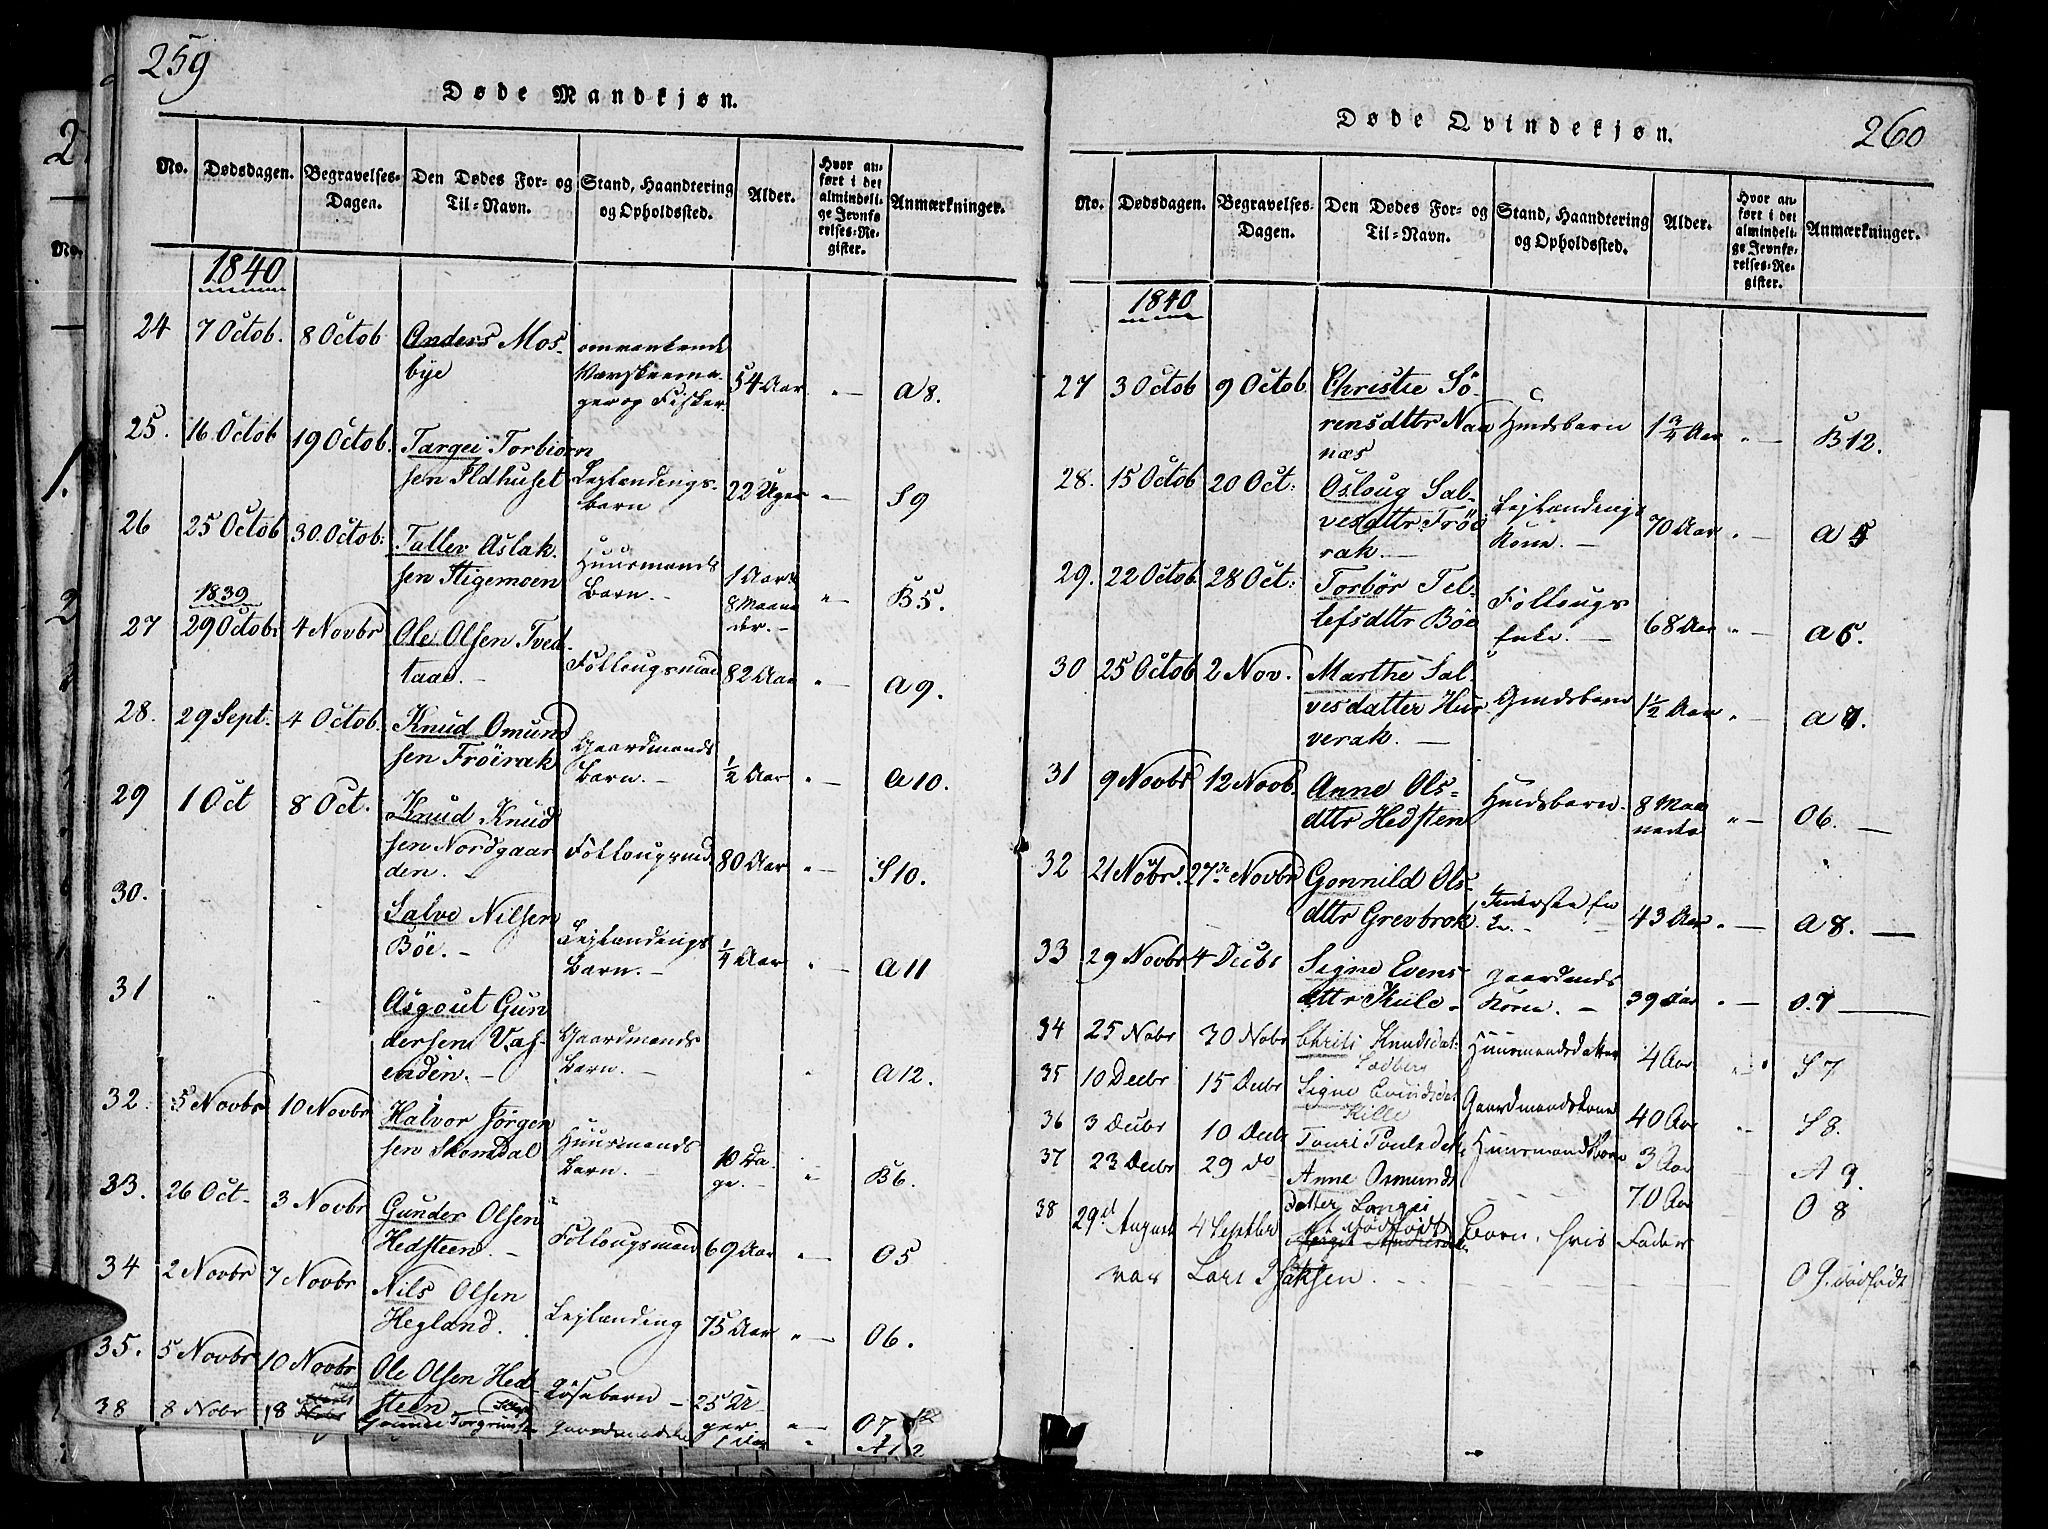 259
Døde Mandkjøn.
No.
Dødsdagen.
Begravelses-
Dagen.
Den Dødes For- og
Til-Navn.
Stand, Haandtering
og Opholdssted.
Alder.
Hvor an-
ført i det
almindeli-
ge Jevnfø
relses-Re-
gister.
Anmærkninger.
1840
24 7 Octob. 8 Octob Anders Mos-
bye
omvankende
54 Aar " — A 8.
ger og Fisker
25. 16 Octob 19 Octob. Targei Torbiørn
sen Ildhuset Lejlændings-
barn 22 Uger " — S 9
26 25 Octob 30. Octob: Tallev Aslak
sen Stigemoen Huusmands
Barn. — 1 Aar
8 Maane
der. — " — B 5.
1839
27 29 Octobr 4 Novbr Ole Olsen Tved
taae. — Follougsmand 82 Aar " — A 9.
28. 29 Sept. 4 Octob. Knud Omund
sen Frøirak Gaardmands
Barn. — 1/2 Aar " — A 10.
29 1 Oct 8 Oct. Knud Knud
sen Nordgaar
den. — Follougsmd 80 Aar " — S 10.
30. " " Salve Nilsen
Bøe. — Lejlændings
Barn. — 1/4 Aar " — A 11
31 " " Asgout Gun
dersen Vas-
enden. — Gaardmands
Barn. — " A 12.
32. 5 Novbr 10 Novbr Halvor Jørgen
sen Skomdal Huusmands
Barn. — 10 Da
ge. — " — B 6.
33. 26 Oct. 3 Novbr Gunder Olsen
Hedsteen. — Follougsmand 69 Aar " — O 5
34 2 Novbr 7 Novbr Nils Olsen
Hegland. Lejlænding 75 Aar " — O 6.
35. 5 Novbr 10 Novbr Ole Olsen Hed-
steen Løsebarn — 25 U
ger " — O 7
38 8 Nobr 18 Gunne Torgrims
1 Aar " A 12
260
Døde Qvindekjøn.
No.
Dødsdagen.
Begravelses-
Dagen.
Den Dødes For- og
Til-Navn.
Stand, Haandtering
og Opholdssted.
Alder.
Hvor an-
ført i det
almindeli-
ge Jevnfø-
relses-Re-
gister.
Anmærkninger.
1840
27 3 Octob 9 Octob. Christie Sö-
rensdttr Naa
næs Hmdsbarn 1 3/4 Aar " — B 12.
28. 15 Octob 20 Oct: Osloug Sal-
vesdttr Frøi
rak. — Lejlændings
Kone. — 70 Aar " — A 5
29. 22 Octob. 28 Oct: Torbör Tel-
lefsdttr Böe Follougs
Enke. — 68 Aar " — A 6.
30 25 Octob 2 Nov. Marthe Sal-
vesdatter Hur
verak. — Gmdsbarn 1 1/2 Aar " — A 7.
31 9 Novbr 12 Novb. Anne Ols-
dttr Hedsten Hmdsbarn. 8 Maa
neder " — O 6. —
32 21 Nobr. 27de Novbr Gonnild Ols-
dttr Grevbrok. 43 Aar " — A 8. —
33 29 Novbr 4 Decbr Signe Evens-
dttr Kiile — gaardmds
Kone. — 39 Aar " — O 7 —
34 25 Nobr 30 Nobr Christi Knudsdat:
Ladberg Huusmandsdatter 4 Aar " S 7
35 10 Decbr 15 Decbr Signe Evindsdat
Kille Gaardmandskone 40 Aar " — S 8.
36 3 Decbr 10 Decbr Touri Poulsdatt. Huusmandsbarn 3 Aar A 9.
37 23 Decbr 29 do Anne Osmunds
datter Langei 70 Aar O 8
38 29d August 4 Septbr et dødfødt Barn, hvis Fader
var Lars Isaksen. O 9. dødfødt